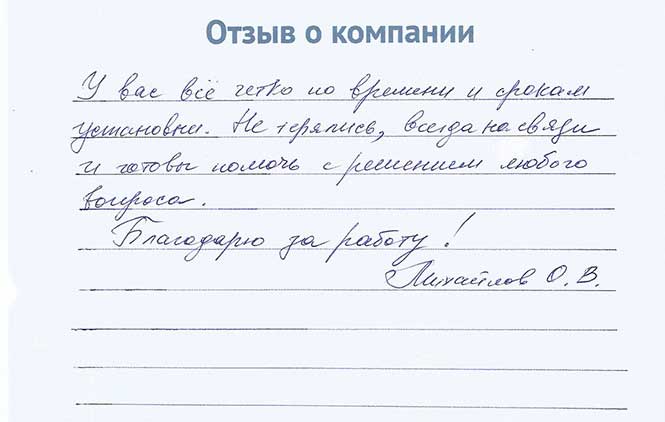 Отзыв о компании
У вас всё четко по времени и срокам
установки. Не терялись, всегда на связи
и готовы помочь с решением любого
вопроса.
Благодарю за работу!
Михайлов О. В.